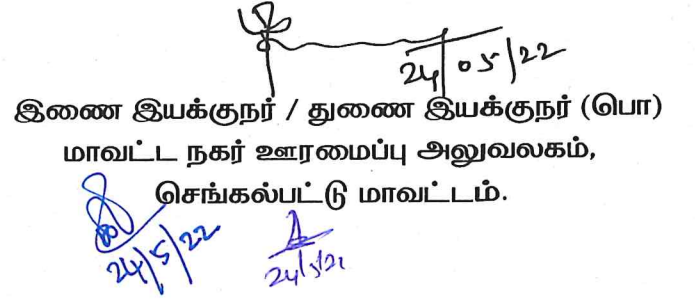 24/05/22
இணை இயக்குநர் / துணை இயக்குநர் (பொ)
மாவட்ட நகர் ஊரமைப்பு அலுவலகம்,
செங்கல்பட்டு மாவட்டம்.
24/5/22
24/5/22